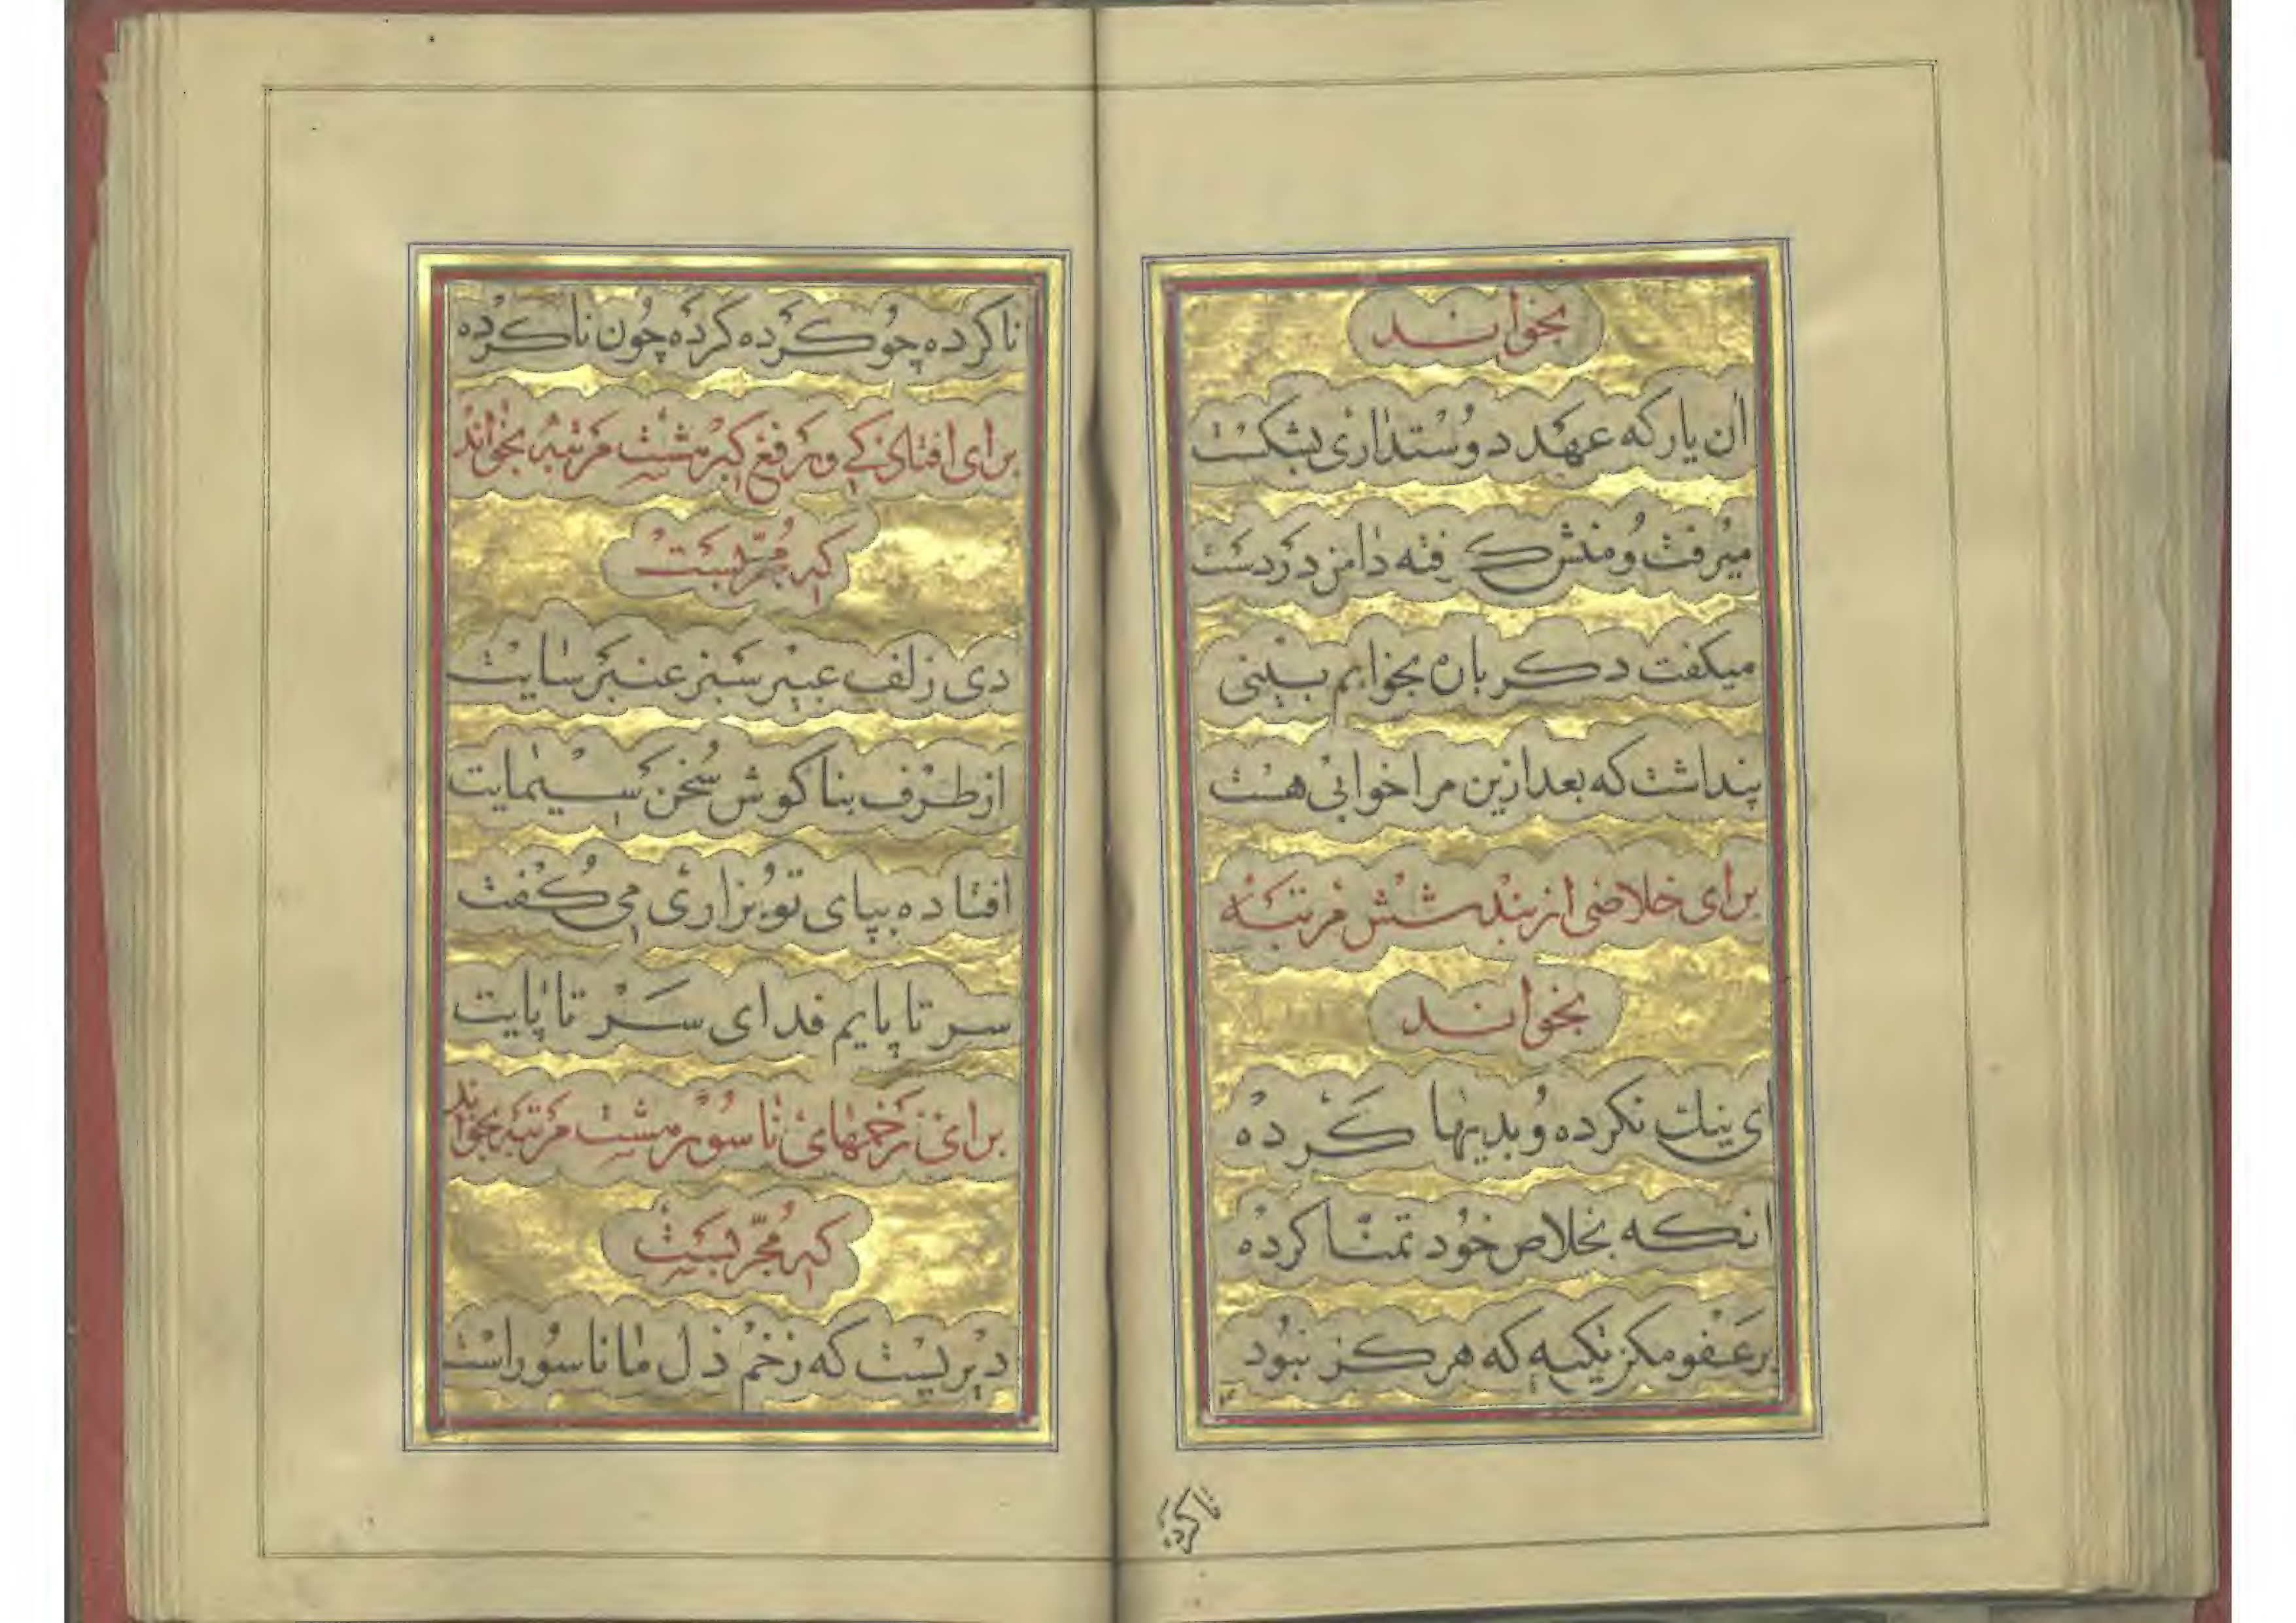 بخواند
ان یار که عهد دوستداری بشکست
میرفت و منش گرفته دامن در دست
میکفت دکر باره بخوابم بینی
پنداشت که بعد ازین مرا خوابی هست
برای خلاصی از بند شش مرتبه
بخواند
ای نیك نکرده و بدیها کرده
انکه بخلاص خود تمنّا کرده
بر عفو مکن تکیه که هرکز نبود
ناکرده
ناکرده چو کرده کرده چون ناکرده
برای افتادکی و رفع کبر مرتبه بخواند
که مجرّبست
دی زلف عبیر بیز عنبر سایت
از طرف بناکوش سمن سیمایت
افتاده بپای تو بزاری می کفت
سر تا پایم فدای سر تا پایت
برای زخمهای ناسور مرتبه بخواند
که مجرّبست
دیریست که زخم دل ما ناسور است